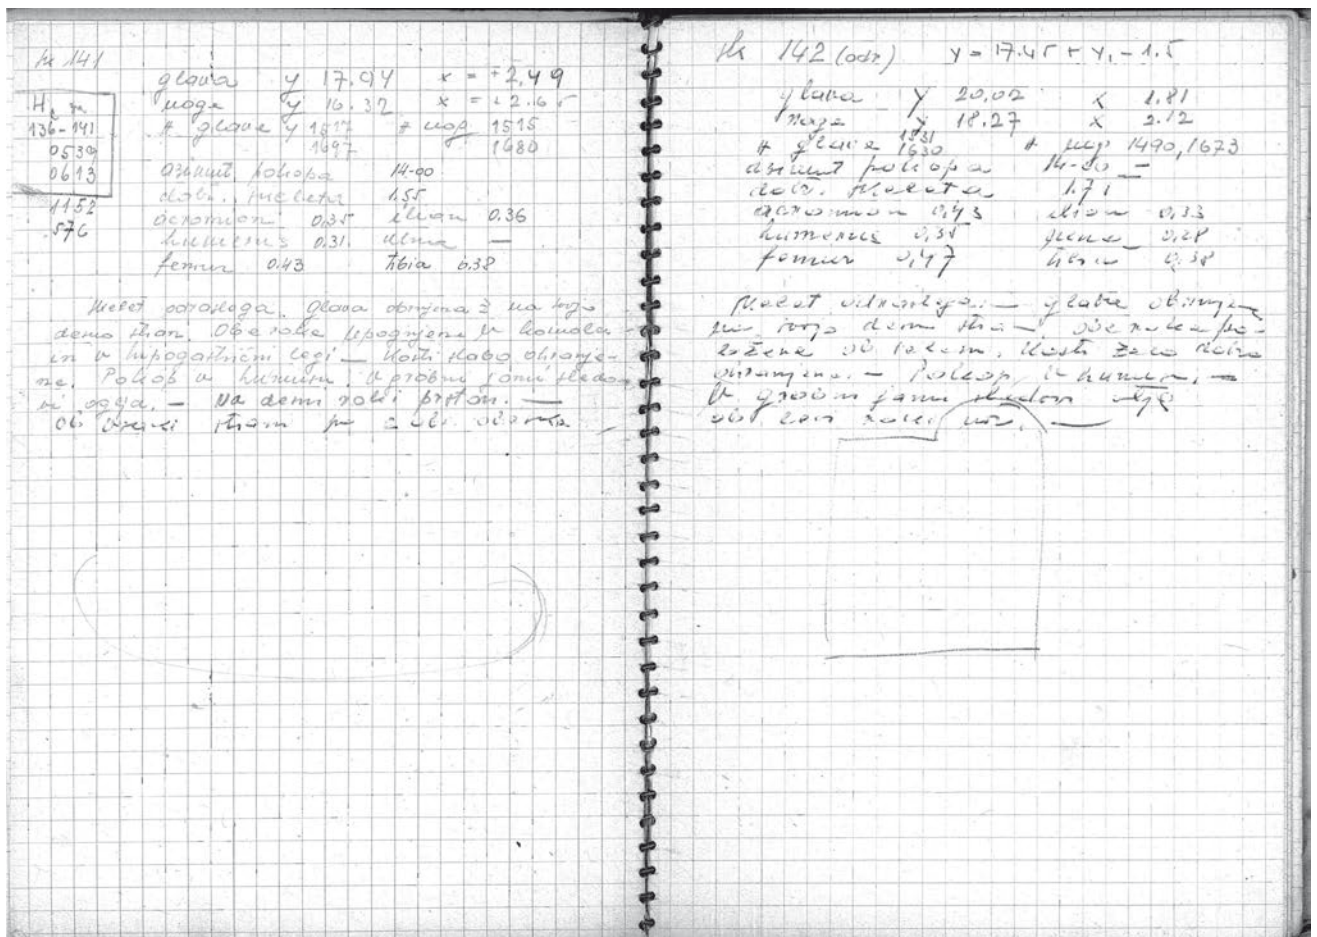 141
glava y 17.94 x = +2,49
noge y 16.32 x = +2.65
H za
136-141
0539
0613
1152
576
# glave y 1517 # nog 1515
1697 1680
azimut pokopa 14-00
dolž. skeleta 1.55
acromion 0.35 ilian 0.36
humerus 0.31. ulna —
femur 0.43 tibia 0.38
skelet odraslega. Glava obrnjena na svojo
desno stran. Obe roke upognjene v komolcu
in v hipogastrični legi — Kosti slabo ohranje-
ne. Pokop v humusu. V grobni jami sledo
vi ognja. — Na desni roki prstan. —
ob stran po
142 (odr) y = 17.45 + y, - 1.5
glava y 20,02 x 1.81
noge y 18.27 x 2.12
# glave 1531 # nog 1490, 1673
1630
azimut pokopa 14-00 —
dolž. skeleta 1.71
acromion 0,43 ilion 0,33
humerus 0,35 0,28
femur 0,47 tibia 0,38
skelet odraslega. — glava obrnjena
na svojo desno stran — obe roke po-
ložene ob telesu. Kosti zelo dobro
ohranjene. — Pokop v humusu. —
V grobni jami sledovi
ob roki nož. —